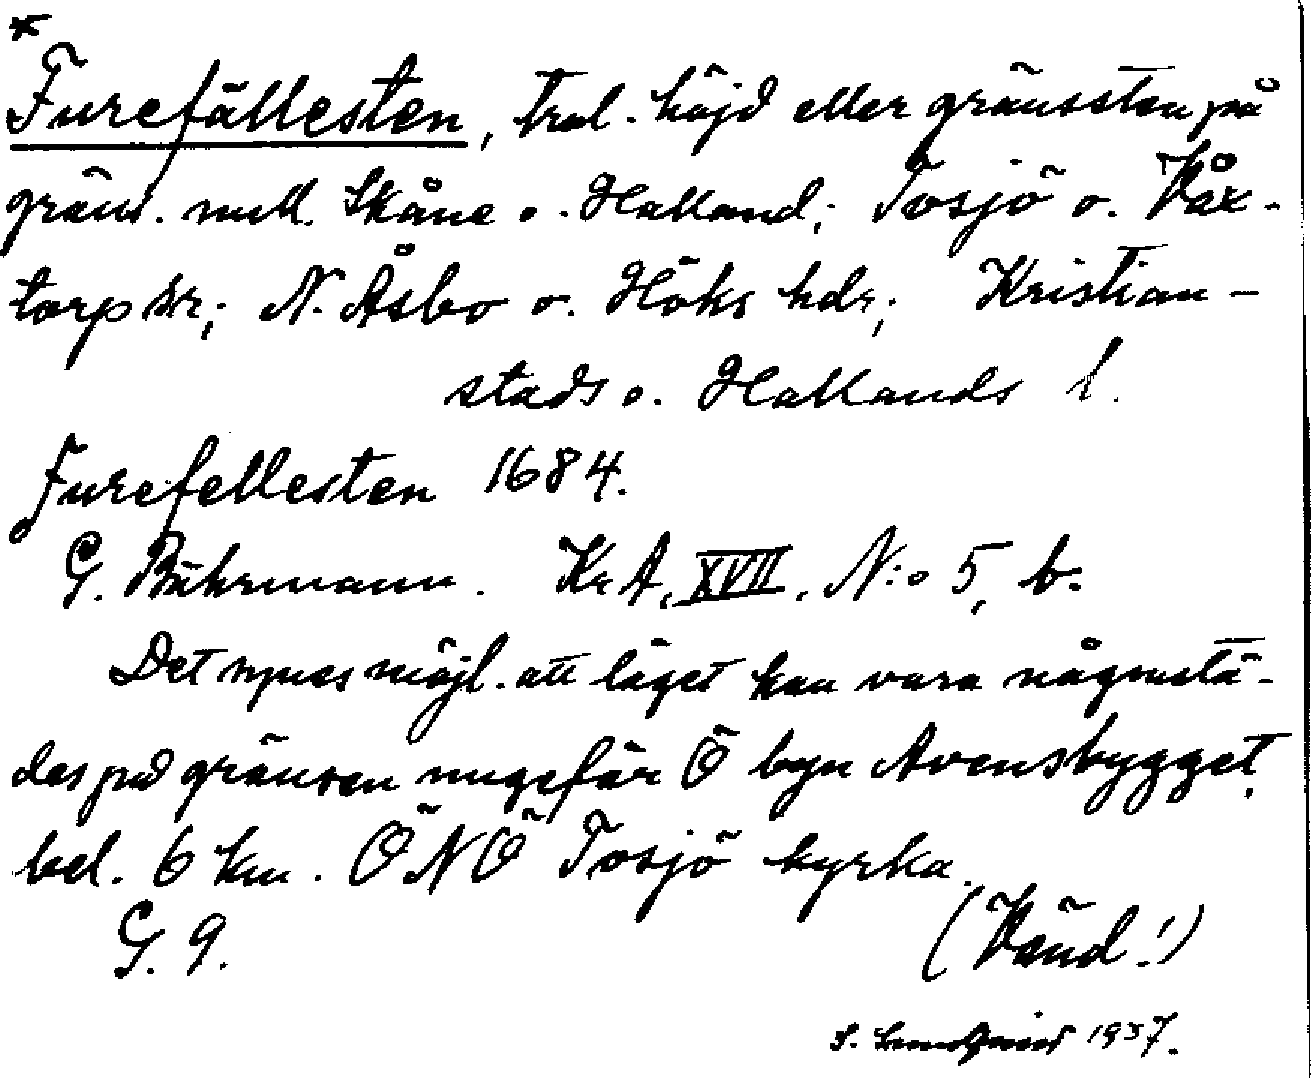 *
Furefällesten, trol. höjd eller gränssten på
gräns. mell. Skåne o. Halland; Tosjö o. Våx-
torp sr; N. Åsbo o. Höks hdr; Kristian-
stads o. Hallands l.
Furefellesten 1684.
G. Buhrmann. Kr A, XVII, N:o 5, b.
Det synes möjl. att läget kan vara någonstä-
des på gränsen ungefär Ö byn Avensbygget,
bel. 6 km. ÖNÖ Tosjö kyrka.
G. 9. (Vänd!)
S. Lundqvist 1937.